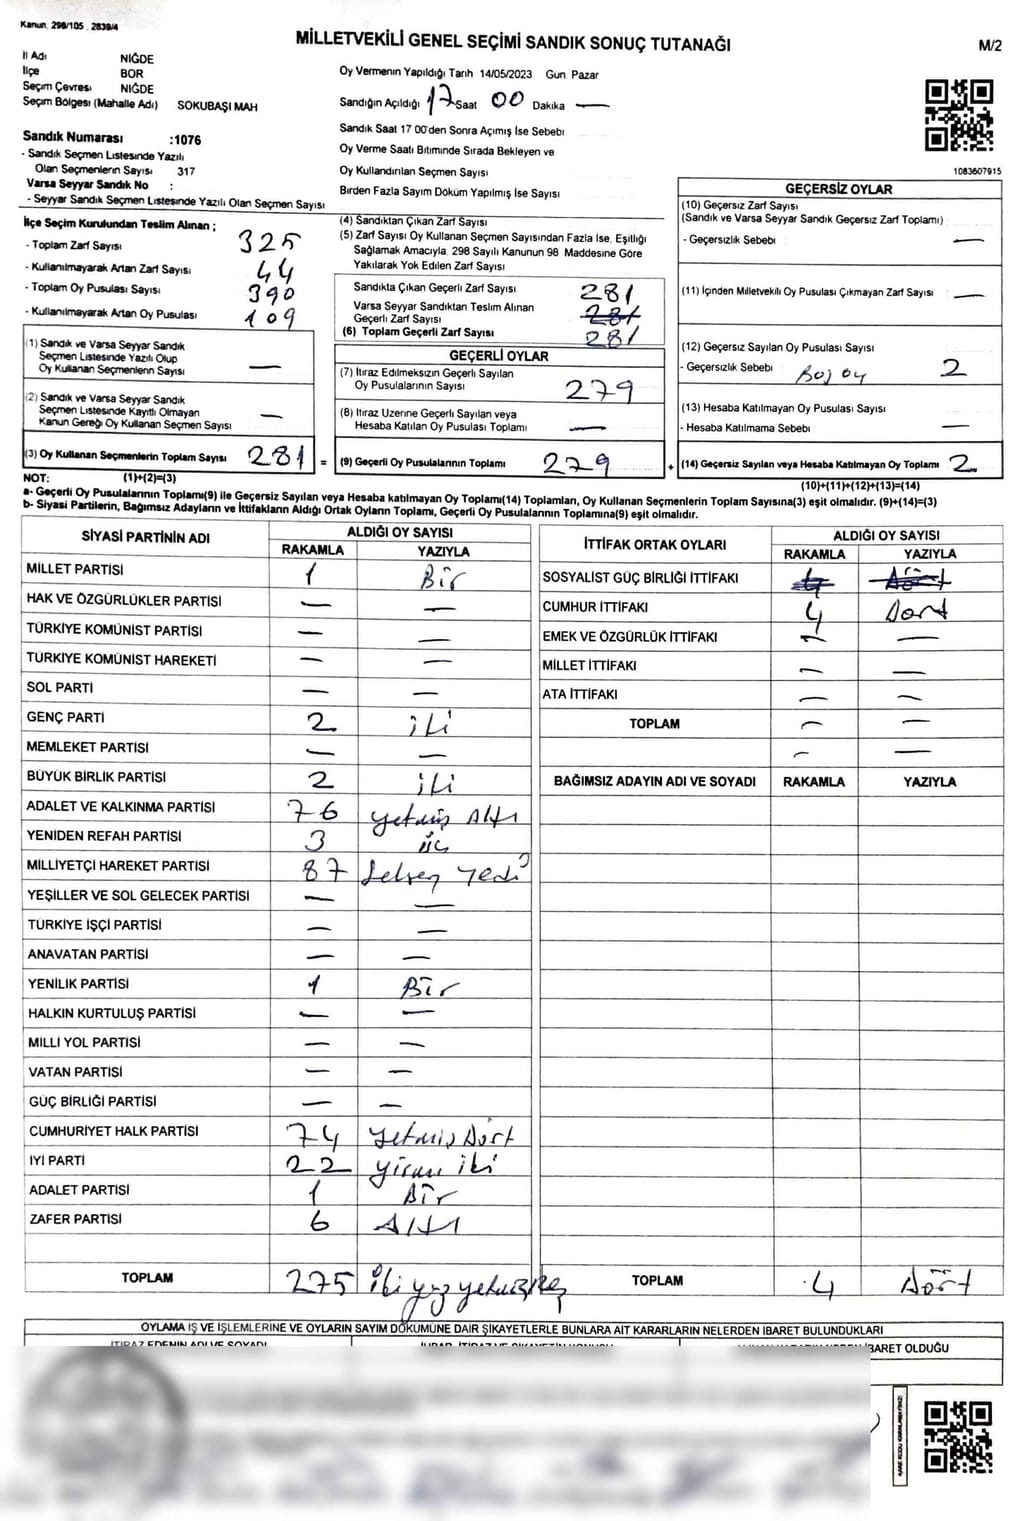 Kanun. 298/105 . 2839/4
MİLLETVEKİLİ GENEL SEÇİMİ SANDIK SONUÇ TUTANAĞI
M/2
İl Adı NİĞDE
İlçe BOR
Seçim Çevresi NİĞDE
Seçim Bölgesi (Mahalle Adı) SOKUBAŞI MAH
Sandık Numarası :1076
- Sandık Seçmen Listesinde Yazılı
Olan Seçmenlerin Sayısı 317
Varsa Seyyar Sandık No :
- Seyyar Sandık Seçmen Listesinde Yazılı Olan Seçmen Sayısı
Oy Vermenin Yapıldığı Tarih 14/05/2023 Gun Pazar
Sandığın Açıldığı 17 Saat 00 Dakika —
Sandık Saat 17 00'den Sonra Açımış İse Sebebi
Oy Verme Saati Bitiminde Sırada Bekleyen ve
Oy Kullandırılan Seçmen Sayısı
Birden Fazla Sayım Döküm Yapılmış İse Sayısı
1083607915
İlçe Seçim Kurulundan Teslim Alınan ;
- Toplam Zarf Sayısı 325
- Kullanılmayarak Artan Zarf Sayısı 44
- Toplam Oy Pusulası Sayısı 390
- Kullanılmayarak Artan Oy Pusulası 109
(1) Sandık ve Varsa Seyyar Sandık
Seçmen Listesinde Yazılı Olup
Oy Kullanan Seçmenlerin Sayısı —
(2) Sandık ve Varsa Seyyar Sandık
Seçmen Listesinde Kayıtlı Olmayan
Kanun Gereği Oy Kullanan Seçmen Sayısı —
(3) Oy Kullanan Seçmenlerin Toplam Sayısı 281 =
(4) Sandıktan Çıkan Zarf Sayısı
(5) Zarf Sayısı Oy Kullanan Seçmen Sayısından Fazla İse, Eşitliği
Sağlamak Amacıyla, 298 Sayılı Kanunun 98 Maddesine Göre
Yakılarak Yok Edilen Zarf Sayısı
Sandıkta Çıkan Geçerli Zarf Sayısı 281
Varsa Seyyar Sandıktan Teslim Alınan
Geçerli Zarf Sayısı 281
(6) Toplam Geçerli Zarf Sayısı 281
GEÇERLİ OYLAR
(7) İtiraz Edilmeksizin Geçerli Sayılan
Oy Pusulalarının Sayısı 279
(8) İtiraz Üzerine Geçerli Sayılan veya
Hesaba Katılan Oy Pusulası Toplamı —
(9) Geçerli Oy Pusulalarının Toplamı 279 +
GEÇERSİZ OYLAR
(10) Geçersiz Zarf Sayısı
(Sandık ve Varsa Seyyar Sandık Geçersiz Zarf Toplamı)
- Geçersizlik Sebebi —
(11) İçinden Milletvekili Oy Pusulası Çıkmayan Zarf Sayısı —
(12) Geçersiz Sayılan Oy Pusulası Sayısı
- Geçersizlik Sebebi Boj oy 2
(13) Hesaba Katılmayan Oy Pusulası Sayısı
- Hesaba Katılmama Sebebi —
(14) Geçersiz Sayılan veya Hesaba Katılmayan Oy Toplamı 2
NOT: (1)+(2)=(3) (10)+(11)+(12)+(13)=(14)
a- Geçerli Oy Pusulalarının Toplamı(9) ile Geçersiz Sayılan veya Hesaba katılmayan Oy Toplamı(14) Toplamları, Oy Kullanan Seçmenlerin Toplam Sayısına(3) eşit olmalıdır. (9)+(14)=(3)
b- Siyasi Partilerin, Bağımsız Adayların ve İttifakların Aldığı Ortak Oyların Toplamı, Geçerli Oy Pusulalarının Toplamına(9) eşit olmalıdır.
SİYASİ PARTİNİN ADI ALDIĞI OY SAYISI
RAKAMLA YAZIYLA
MİLLET PARTİSİ 1 Bir
HAK VE ÖZGÜRLÜKLER PARTİSİ — —
TÜRKİYE KOMÜNİST PARTİSİ — —
TÜRKİYE KOMÜNİST HAREKETİ — —
SOL PARTİ — —
GENÇ PARTİ 2 iki
MEMLEKET PARTİSİ — —
BÜYÜK BİRLİK PARTİSİ 2 iki
ADALET VE KALKINMA PARTİSİ 76 yetmiş Altı
YENİDEN REFAH PARTİSİ 3 üç
MİLLİYETÇİ HAREKET PARTİSİ 87 Seksen yedi
YEŞİLLER VE SOL GELECEK PARTİSİ — —
TÜRKİYE İŞÇİ PARTİSİ — —
ANAVATAN PARTİSİ — —
YENİLİK PARTİSİ 1 Bir
HALKIN KURTULUŞ PARTİSİ — —
MİLLİ YOL PARTİSİ — —
VATAN PARTİSİ — —
GÜÇ BİRLİĞİ PARTİSİ — —
CUMHURİYET HALK PARTİSİ 74 yetmiş Dört
İYİ PARTİ 22 yirmi iki
ADALET PARTİSİ 1 Bir
ZAFER PARTİSİ 6 Altı
TOPLAM 275 iki yüz yetmiş Beş
İTTİFAK ORTAK OYLARI ALDIĞI OY SAYISI
RAKAMLA YAZIYLA
SOSYALİST GÜÇ BİRLİĞİ İTTİFAKI 4 Dört
CUMHUR İTTİFAKI 4 Dort
EMEK VE ÖZGÜRLÜK İTTİFAKI — —
MİLLET İTTİFAKI — —
ATA İTTİFAKI — —
TOPLAM — —
— —
BAĞIMSIZ ADAYIN ADI VE SOYADI RAKAMLA YAZIYLA
TOPLAM 4 Dört
OYLAMA İŞ VE İŞLEMLERİNE VE OYLARIN SAYIM DÖKÜMÜNE DAİR ŞİKAYETLERLE BUNLARA AİT KARARLARIN NELERDEN İBARET BULUNDUKLARI
İTİRAZ EDENİN ADI VE SOYADI
İBARET OLDUĞU